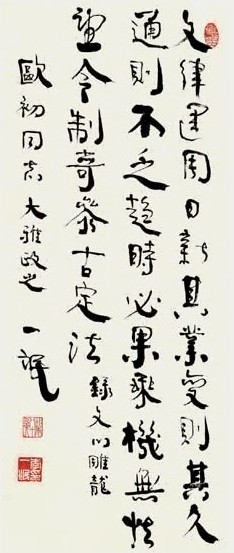 文律運周日新其業變則其久
通則不乏趍時必果乘機無怯
望今制奇參古定法 録文心雕龍
歐初同志大雅政之 一氓